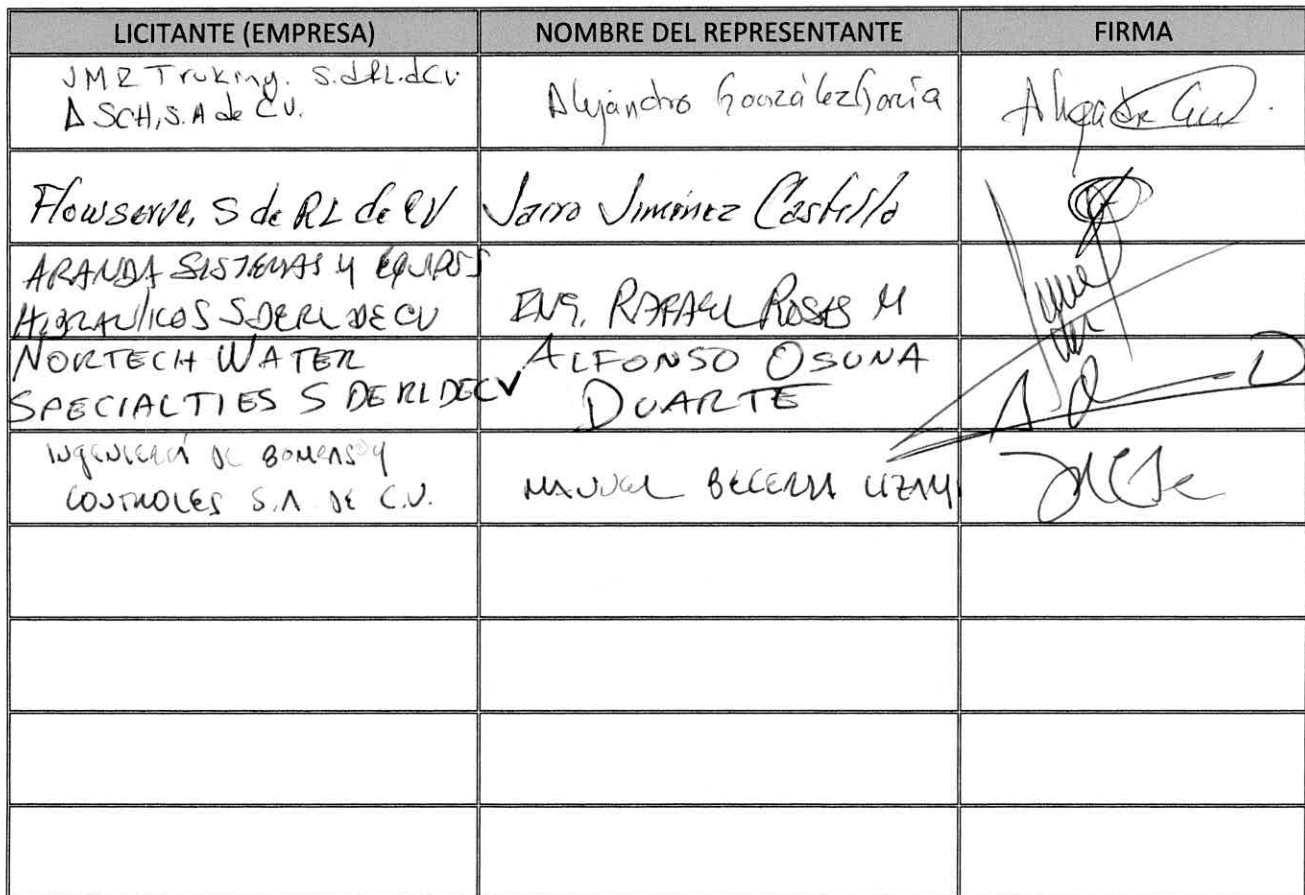 LICITANTE (EMPRESA) NOMBRE DEL REPRESENTANTE FIRMA
JMR Truking. S.dRL.dCV.
DSCH, S.A de C.V.
Alejandro González García
Flowserve, S de RL de CV
Jairo Jiménez Castillo
ARANDA SISTEMAS Y EQUIPOS
HIDRAULICOS S DE RL DE CV
ING. RAFAEL ROSAS M
NORTECH WATER
SPECIALTIES S DE RL DE CV
ALFONSO OSUNA
DUARTE
INGENIERÍA DE BOMBAS Y
CONTROLES S.A. DE C.V.
MANUEL BECERRA